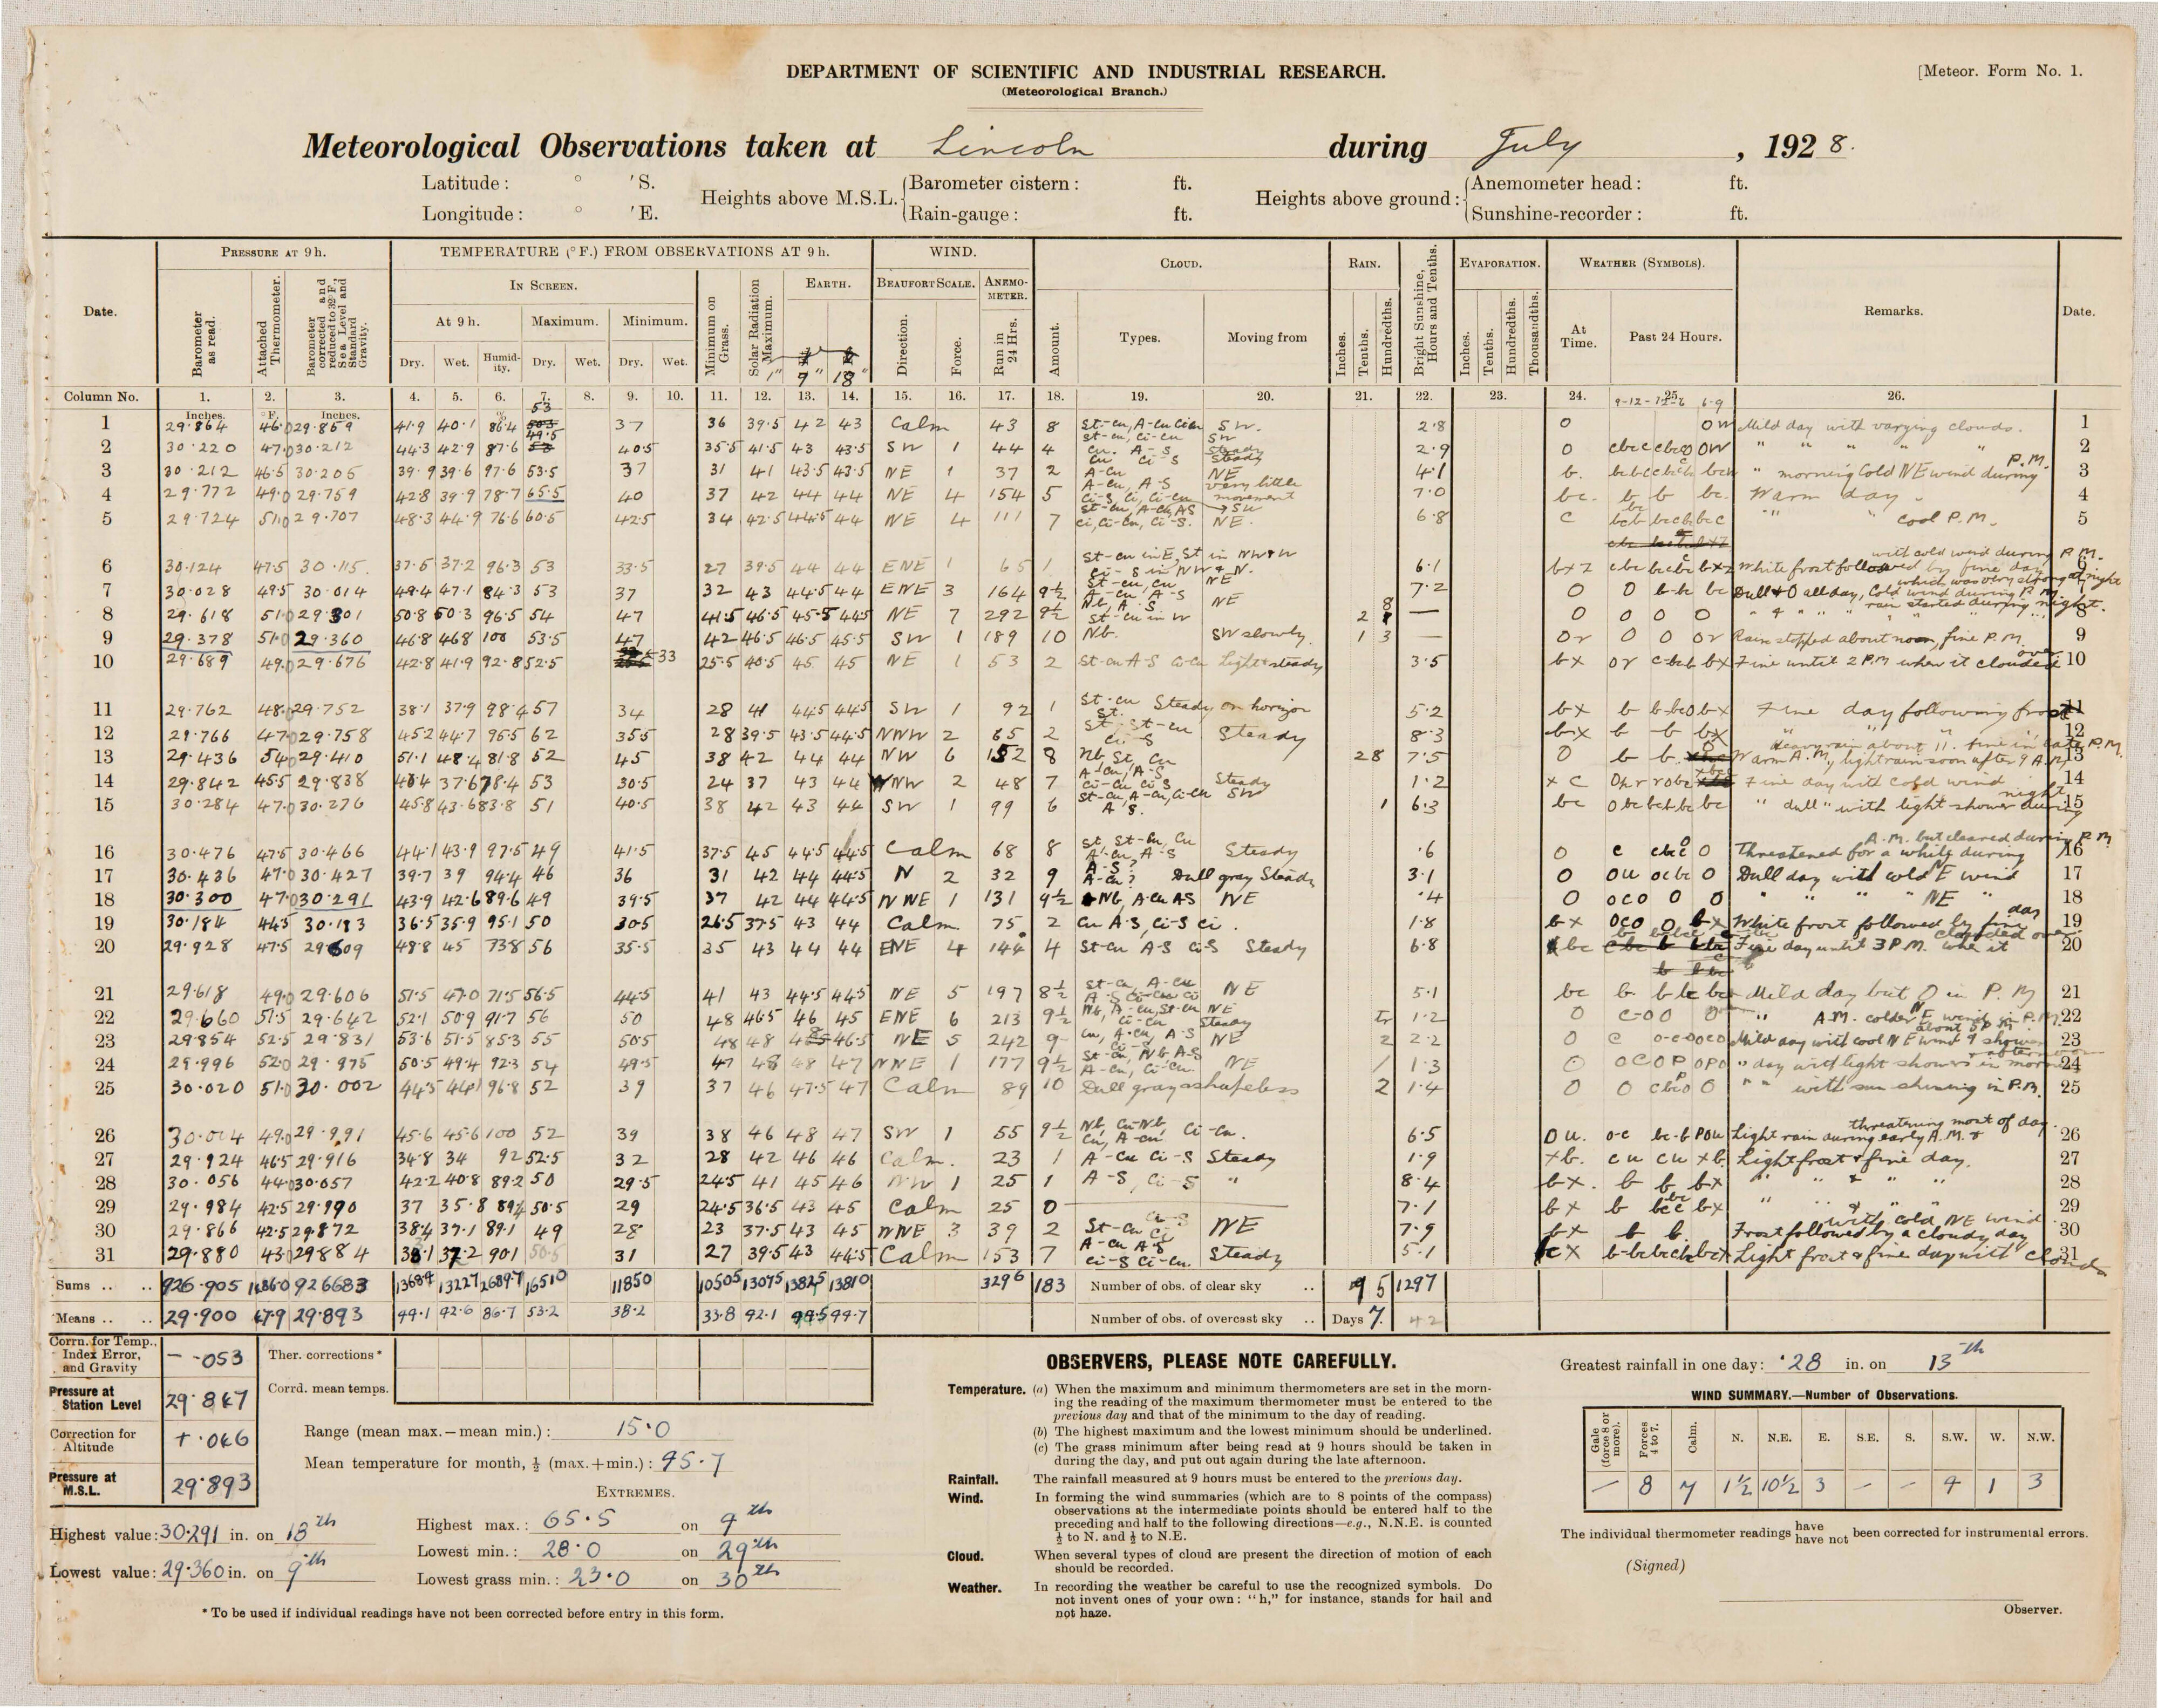 DEPARTMENT OF SCIENTIFIC AND INDUSTRIAL RESEARCH.
[Meteor. Form No. 1.
(Meteorological Branch.)
Meteorological Observations taken at Lincoln during July, 1928.
Latitude: ° 'S. Heights above M.S.L. Barometer cistern: ft. Heights above ground: Anemometer head: ft.
Longitude: ° 'E. Rain-gauge: ft. Sunshine-recorder: ft.
Date. PRESSURE AT 9 h. TEMPERATURE (° F.) FROM OBSERVATIONS AT 9 h. WIND. CLOUD. RAIN. Bright Sunshine, Hours and Tenths. EVAPORATION. WEATHER (SYMBOLS). Remarks. Date.
Barometer as read. Attached Thermometer. Barometer corrected and reduced to 32° F., Sea Level and Standard Gravity. IN SCREEN. Minimum on Grass. Solar Radiation Maximum. EARTH. BEAUFORT SCALE. ANEMO-METER. Amount. Types. Moving from Inches. Tenths. Hundredths. Inches. Tenths. Hundredths. Thousandths. At Time. Past 24 Hours.
At 9 h. Maximum. Minimum. Direction. Force. Run in 24 Hrs.
Dry. Wet. Humid-ity. Dry. Wet. Dry. Wet. 1" 9" 18"
Column No. 1. 2. 3. 4. 5. 6. 7. 8. 9. 10. 11. 12. 13. 14. 15. 16. 17. 18. 19. 20. 21. 22. 23. 24. 25. 26.
Inches. °F. Inches. %
1 29.864 46.0 29.859 41.9 40.1 86.4 53 37 36 39.5 42 43 Calm 43 8 St-cu, A-cu S W. 2.8 O O W Mild day with varying clouds. 1
2 30.220 47.0 30.212 44.3 42.9 87.6 49.5 40.5 35.5 41.5 43 43.5 SW 1 44 4 2.9 O " " " " 2
3 30.212 46.5 30.205 39.9 39.6 97.6 53.5 37 31 41 43.5 43.5 NE 1 37 2 A-cu NE 4.1 b. " morning Cold NE wind during P.M. 3
4 29.772 49.0 29.759 42.8 39.9 78.7 65.5 40 37 42 44 44 NE 4 154 5 A-cu, A-S Ci-S, Ci, Ci-cu very little movement 7.0 bc. b b bc. Warm day. 4
5 29.724 51.0 29.707 48.3 44.9 76.6 60.5 42.5 34 42.5 44.5 44 NE 4 111 7 Ci, Ci-cu, Ci-S. NE. 6.8 c " " cool P.M. 5
6 30.124 47.5 30.115. 37.5 37.2 96.3 53 33.5 27 39.5 44 44 ENE 1 65 1 St-cu in E, St in NW & W 6.1 White frost followed by fine day with cold wind during P.M. 6
7 30.028 49.5 30.014 49.4 47.1 84.3 53 37 32 43 44.5 44 ENE 3 164 9½ St-cu, cu A-cu, A-S NE 7.2 O O b-bc bc Dull & O all day, Cold wind during P.M. which was very strong at night 7
8 29.618 51.0 29.301 50.8 50.3 96.5 54 47 41.5 46.5 45.5 44.5 NE 7 292 9½ Nb, A-S. St-cu in W NE 2 — O O O O " " rain started during night. 8
9 29.378 51.0 29.360 46.8 46.8 100 53.5 47 42 46.5 46.5 45.5 SW 1 189 10 Nb. SW slowly. 1 3 — Or O O Or Rain stopped about noon, fine P.M. 9
10 29.689 49.0 29.676 42.8 41.9 92.8 52.5 33 25.5 40.5 45 45 NE 1 53 2 St-cu A-S Ci-Cu Light & steady 3.5 bx or bx Fine until 2 P.M when it clouded over 10
11 29.762 48.0 29.752 38.1 37.9 98.4 57 34 28 41 44.5 44.5 SW 1 92 1 St-cu St. Steady on horizon 5.2 bx b b-bco bx Fine day following frost 11
12 29.766 47.0 29.758 45.2 44.7 95.5 62 35.5 28 39.5 43.5 44.5 NNW 2 65 2 St. St-cu Ci-S Steady 8.3 bx b b bx 12
13 29.436 54.0 29.410 51.1 48.4 81.8 52 45 38 42 44 44 NW 6 152 8 Nb St, Cu 28 7.5 O b b Warm A.M., light rain soon after 9 A.M. Heavy rain about 11. fine in late P.M. 13
14 29.842 45.5 29.838 40.4 37.6 78.4 53 30.5 24 37 43 44 WNW 2 48 7 A-cu, A-S Ci-cu Ci-S Steady 1.2 x c Fine day with cold wind 14
15 30.284 47.0 30.276 45.8 43.6 83.8 51 40.5 38 42 43 44 SW 1 99 6 St-cu, A-cu, Ci-cu A-S. SW 1 6.3 bc " dull " with light shower during night 15
16 30.476 47.5 30.466 44.1 43.9 97.5 49 41.5 37.5 45 44.5 44.5 Calm 68 8 St, St-cu, Cu A-cu, A-S Steady .6 O c O Threatened for a while during A.M. but cleared during P.M 16
17 30.436 47.0 30.427 39.7 39 94.4 46 36 31 42 44 44.5 N 2 32 9 A-S. A-cu? Dull gray Steady 3.1 O Dull day with cold E wind 17
18 30.300 47.0 30.291 43.9 42.6 89.6 49 39.5 37 42 44 44.5 NNE 1 131 9½ Nb, A-cu AS NE .4 O oco O O " " " NE " 18
19 30.184 44.5 30.183 36.5 35.9 95.1 50 30.5 26.5 37.5 43 44 Calm 75 2 Cu A-S, Ci-S Ci. 1.8 bx oco O bx White frost followed by fine day 19
20 29.928 47.5 48.8 45 73.8 56 35.5 35 43 44 44 ENE 4 144 4 St-cu A-S Ci-S Steady 6.8 bc Fine day until 3 P.M. when it clouded over 20
21 29.618 49.0 29.606 51.5 47.0 71.5 56.5 44.5 41 43 44.5 44.5 NE 5 197 8½ St-cu, A-cu NE 5.1 bc b. Mild day but O in P.M 21
22 29.660 51.5 29.642 52.1 50.9 91.7 56 50 48 46.5 46 45 ENE 6 213 9½ Nb, A-cu, St-cu Ci-cu NE Steady Tr 1.2 O c-o O " A.M. colder NE wind in P.M. 22
23 29.854 52.5 29.831 53.6 51.5 85.3 55 50.5 48 48 46.5 NE 5 242 9- Cu, A-cu, A-S Ci-S NE 2 2.2 O c Mild day with cool NE wind & shower about 5 P.M. 23
24 29.996 52.0 29.975 50.5 49.4 92.3 54 49.5 47 48 48 47 NNE 1 177 9½ St-cu, Nb, A-S A-cu, Ci-cu. NE 1 1.3 O OCOP OPO " day with light showers in morning & afternoon 24
25 30.020 51.0 30.002 44.5 44.1 96.8 52 39 37 46 47.5 47 Calm 89 10 Dull gray & shapeless 2 1.4 O O O " " with sun shining in P.M. 25
26 30.004 49.0 29.991 45.6 45.6 100 52 39 38 46 48 47 SW 1 55 9½ Nb, Cu-Nb, Cu, A-cu, Ci-cu. 6.5 O u. o-c bc-b POu Light rain during early A.M. & threatening most of day. 26
27 29.924 46.5 29.916 34.8 34 92 52.5 32 28 42 46 46 Calm. 23 1 A-cu Ci-S Steady 1.9 xb. cu cu xb Light frost & fine day. 27
28 30.056 44.0 30.057 42.2 40.8 89.2 50 29.5 24.5 41 45 46 NW 1 25 1 A-S, Ci-S " 8.4 bx. b b bx " " " " 28
29 29.984 42.5 29.990 37 35.8 89½ 50.5 29 24.5 36.5 43 45 Calm 25 0 7.1 bx b bx " " & " " 29
30 29.866 42.5 29.872 38.4 37.1 89.1 49 28 23 37.5 43 45 NNE 3 39 2 St-cu NE 7.9 bx b b. Frost followed by a cloudy day with cold NE wind 30
31 29.880 43.0 29.884 38.1 37.2 90.1 50.5 31 27 39.5 43 44.5 Calm 153 7 A-cu A-S Ci-S Ci-cu. Steady 5.1 Light frost & fine day with clouds 31
Sums .. .. 926.905 926683 13684 13227 26897 16510 11850 10505 13075 13825 13810 3296 183 Number of obs. of clear sky .. 95 1297
Means .. .. 29.900 47.9 29.893 44.1 42.6 86.7 53.2 38.2 33.8 42.1 44.5 44.7 Number of obs. of overcast sky .. Days 7. 42
Corrn. for Temp., Index Error, and Gravity - .053
Ther. corrections*
Corrd. mean temps.
Pressure at Station Level 29.847
Correction for Altitude +.046
Pressure at M.S.L. 29.893
Highest value: 30.291 in. on 18th
Lowest value: 29.360 in. on 9th
Range (mean max. — mean min.): 15.0
Mean temperature for month, ½ (max. + min.): 45.7
EXTREMES.
Highest max.: 65.5 on 4th
Lowest min.: 28.0 on 29th
Lowest grass min.: 23.0 on 30th
* To be used if individual readings have not been corrected before entry in this form.
OBSERVERS, PLEASE NOTE CAREFULLY.
Temperature. (a) When the maximum and minimum thermometers are set in the morn-
ing the reading of the maximum thermometer must be entered to the
previous day and that of the minimum to the day of reading.
(b) The highest maximum and the lowest minimum should be underlined.
(c) The grass minimum after being read at 9 hours should be taken in
during the day, and put out again during the late afternoon.
Rainfall. The rainfall measured at 9 hours must be entered to the previous day.
Wind. In forming the wind summaries (which are to 8 points of the compass)
observations at the intermediate points should be entered half to the
preceding and half to the following directions—e.g., N.N.E. is counted
½ to N. and ½ to N.E.
Cloud. When several types of cloud are present the direction of motion of each
should be recorded.
Weather. In recording the weather be careful to use the recognized symbols. Do
not invent ones of your own: "h," for instance, stands for hail and
not haze.
Greatest rainfall in one day: .28 in. on 13th
WIND SUMMARY.—Number of Observations.
Gale (force 8 or more). Forces 4 to 7. Calm. N. N.E. E. S.E. S. S.W. W. N.W.
— 8 7 1½ 10½ 3 - - 4 1 3
The individual thermometer readings have / have not been corrected for instrumental errors.
(Signed)
Observer.